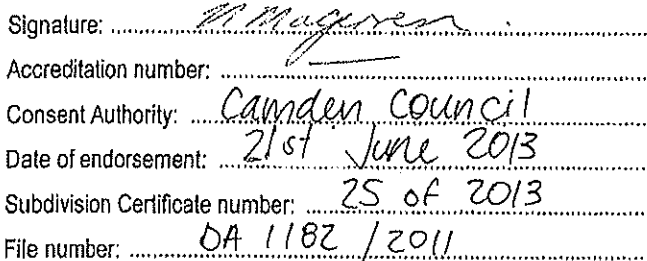 Signature:
Accreditation number: —
Consent Authority: Camden Council
Date of endorsement: 21st June 2013
Subdivision Certificate number: 25 of 2013
File number: DA 1182 / 2011